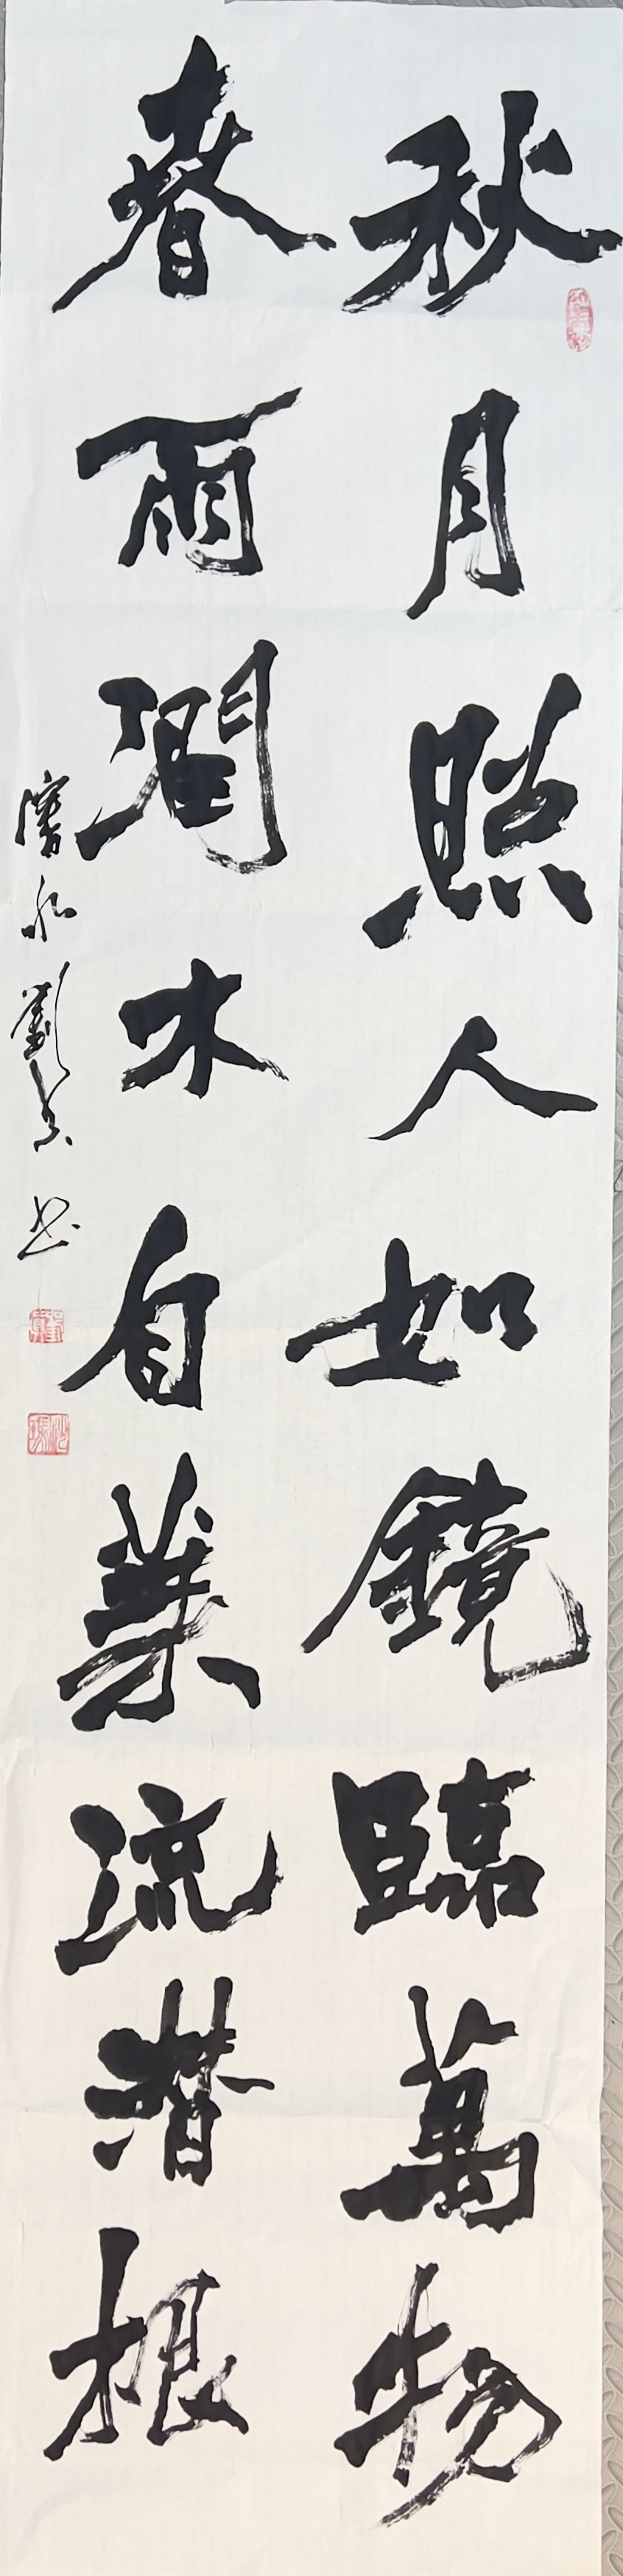 秋月照人如鏡臨萬物
春雨潤木自葉流潜根
劉
书